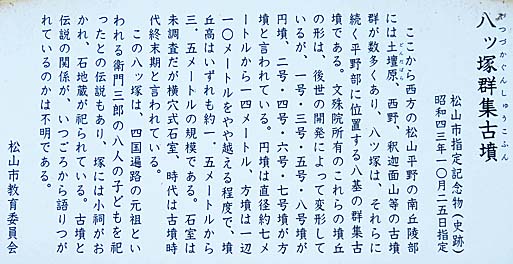 八ッ塚群集古墳
やつづかぐんしゅうこふん
松山市指定記念物(史跡)
昭和四三年一〇月二五日指定
ここから西方の松山平野の南丘陵部
には土壇原、西野、釈迦面山等の古墳
どんだばら
群が数多くあり、八ツ塚は、それらに
続く平野部に位置する八基の群集古
墳である。文殊院所有のこれらの墳丘
の形は、後世の開発によって変形して
いるが、一号・三号・五号・八号墳が
円墳、二号・四号・六号・七号墳が方
墳と言われている。円墳は直径約七メ
ートルから一四メートル、方墳は一辺
一〇メートルをやや越える程度で、墳
丘高はいずれも約一.五メートルから
三.五メートルの規模である。石室は
未調査だが横穴式石室、時代は古墳時
代終末期と言われている。
この八ッ塚は、四国遍路の元祖とい
われる衛門三郎の八人の子どもを祀
ったとの伝説もあり、塚には小祠がお
かれ、石地蔵が祀られている。古墳と
伝説の関係が、いつごろから語りつが
れているのかは不明である。
松山市教育委員会